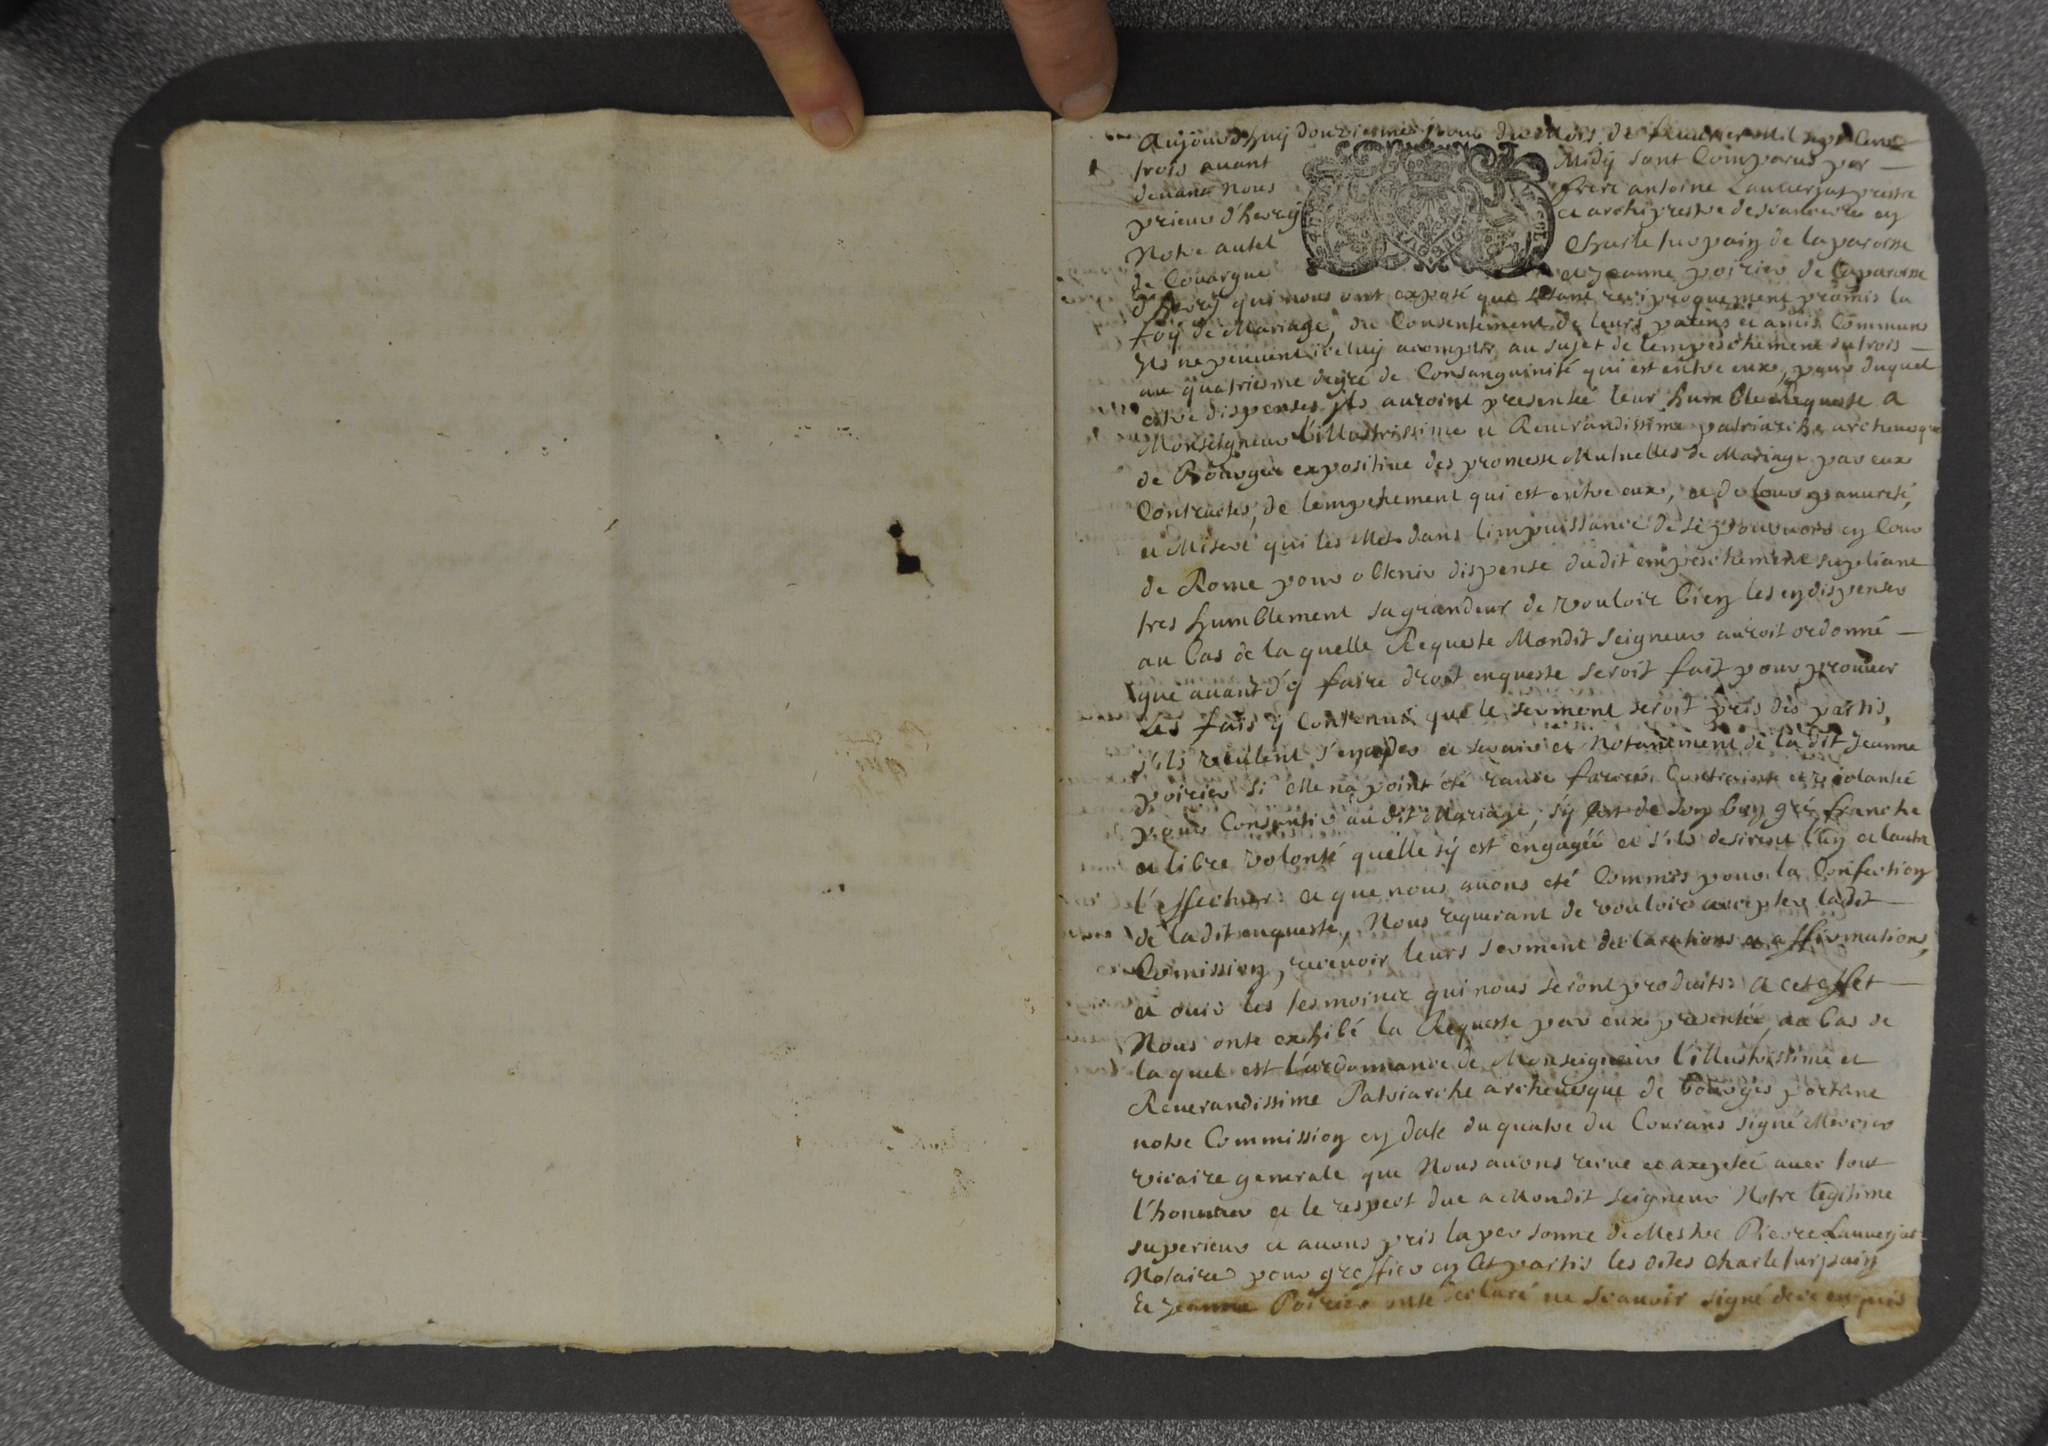 Aujourdhuy douziesme jour du Mois de feuvrier Mil sept cent
trois avant Midy sont Comparus par
devant Nous frere antoine Lauverjat prestre
prieur d'herry et archiprestre de sancerre en
Notre autel Charle surpain de la paroisse
de Couargue et Jeanne poirier de la paroisse
d'herry qui nous ont exposé que s'estant reciproquement promis la
foy de Mariage, du Consentement de leurs parens et amis Communs
Ils ne peuvent iceluy acomplir au sujet de lempeschement du trois
au quatriesme degré de Consanguinité qui est entre eux, pour duquel
estre dispensés ils auroint presentée leur humble Requeste a
Monseigneur l'illustrissime et Reverandissime patriarche archevesque
de Bourges expositive des promesse Mutuelles de Mariage par eux
Contractes, de lempechement qui est entre eux, et de leur pauvreté,
et Misere qui les Met dans limpuissance de se pourvoir en Cour
de Rome pour obtenir dispense dudit empeschement supliant
tres humblement sa grandeur de vouloir bien les en dispenser
au bas de la quelle Requeste Mondit seigneur auroit ordonné
que avant d'y faire droit enqueste seroit fait pour prouver
Les fais y Contenus que le serment seroit pris des partis,
s'ils veulent s'epouser et scavoir et Notanment de la dit Jeanne
poirier si elle na point été ravie forcée Contrainte et violantée
pour Consentir au dit Mariage, sy cest de son bon gré franche
et libre volonté quelle sy est engagée et s'ils desirent l'un et lautre
l'effectuer: et que nous avons eté Commis pour la Confection
de ladit enqueste, Nous requerant de vouloir accepter ladit
Commission, recevoir leurs serment declarations et affirmations,
et ouir les tesmoines qui nous seront produits: a cet effet
Nous onte exhibé la Requeste par eux presentée, au bas de
laquel est l'ordonnance de Monseigneur l'illustrissime et
Reverandissime Patriarche archevesque de bourges portant
notre Commission en date du quatre du Courans signé Mercier
vicaire generale que Nous avons recue et axeptée avec tout
l'honneur et le respect due a Mondit seigneur Notre legitime
superieur et avons pris la personne de Mestre Pierre Lauverjat
Notaire pour greffier en Cet partis les dites charle surpain
Et Jeanne Poirier onte declaré ne scavoir signé de ce enquis